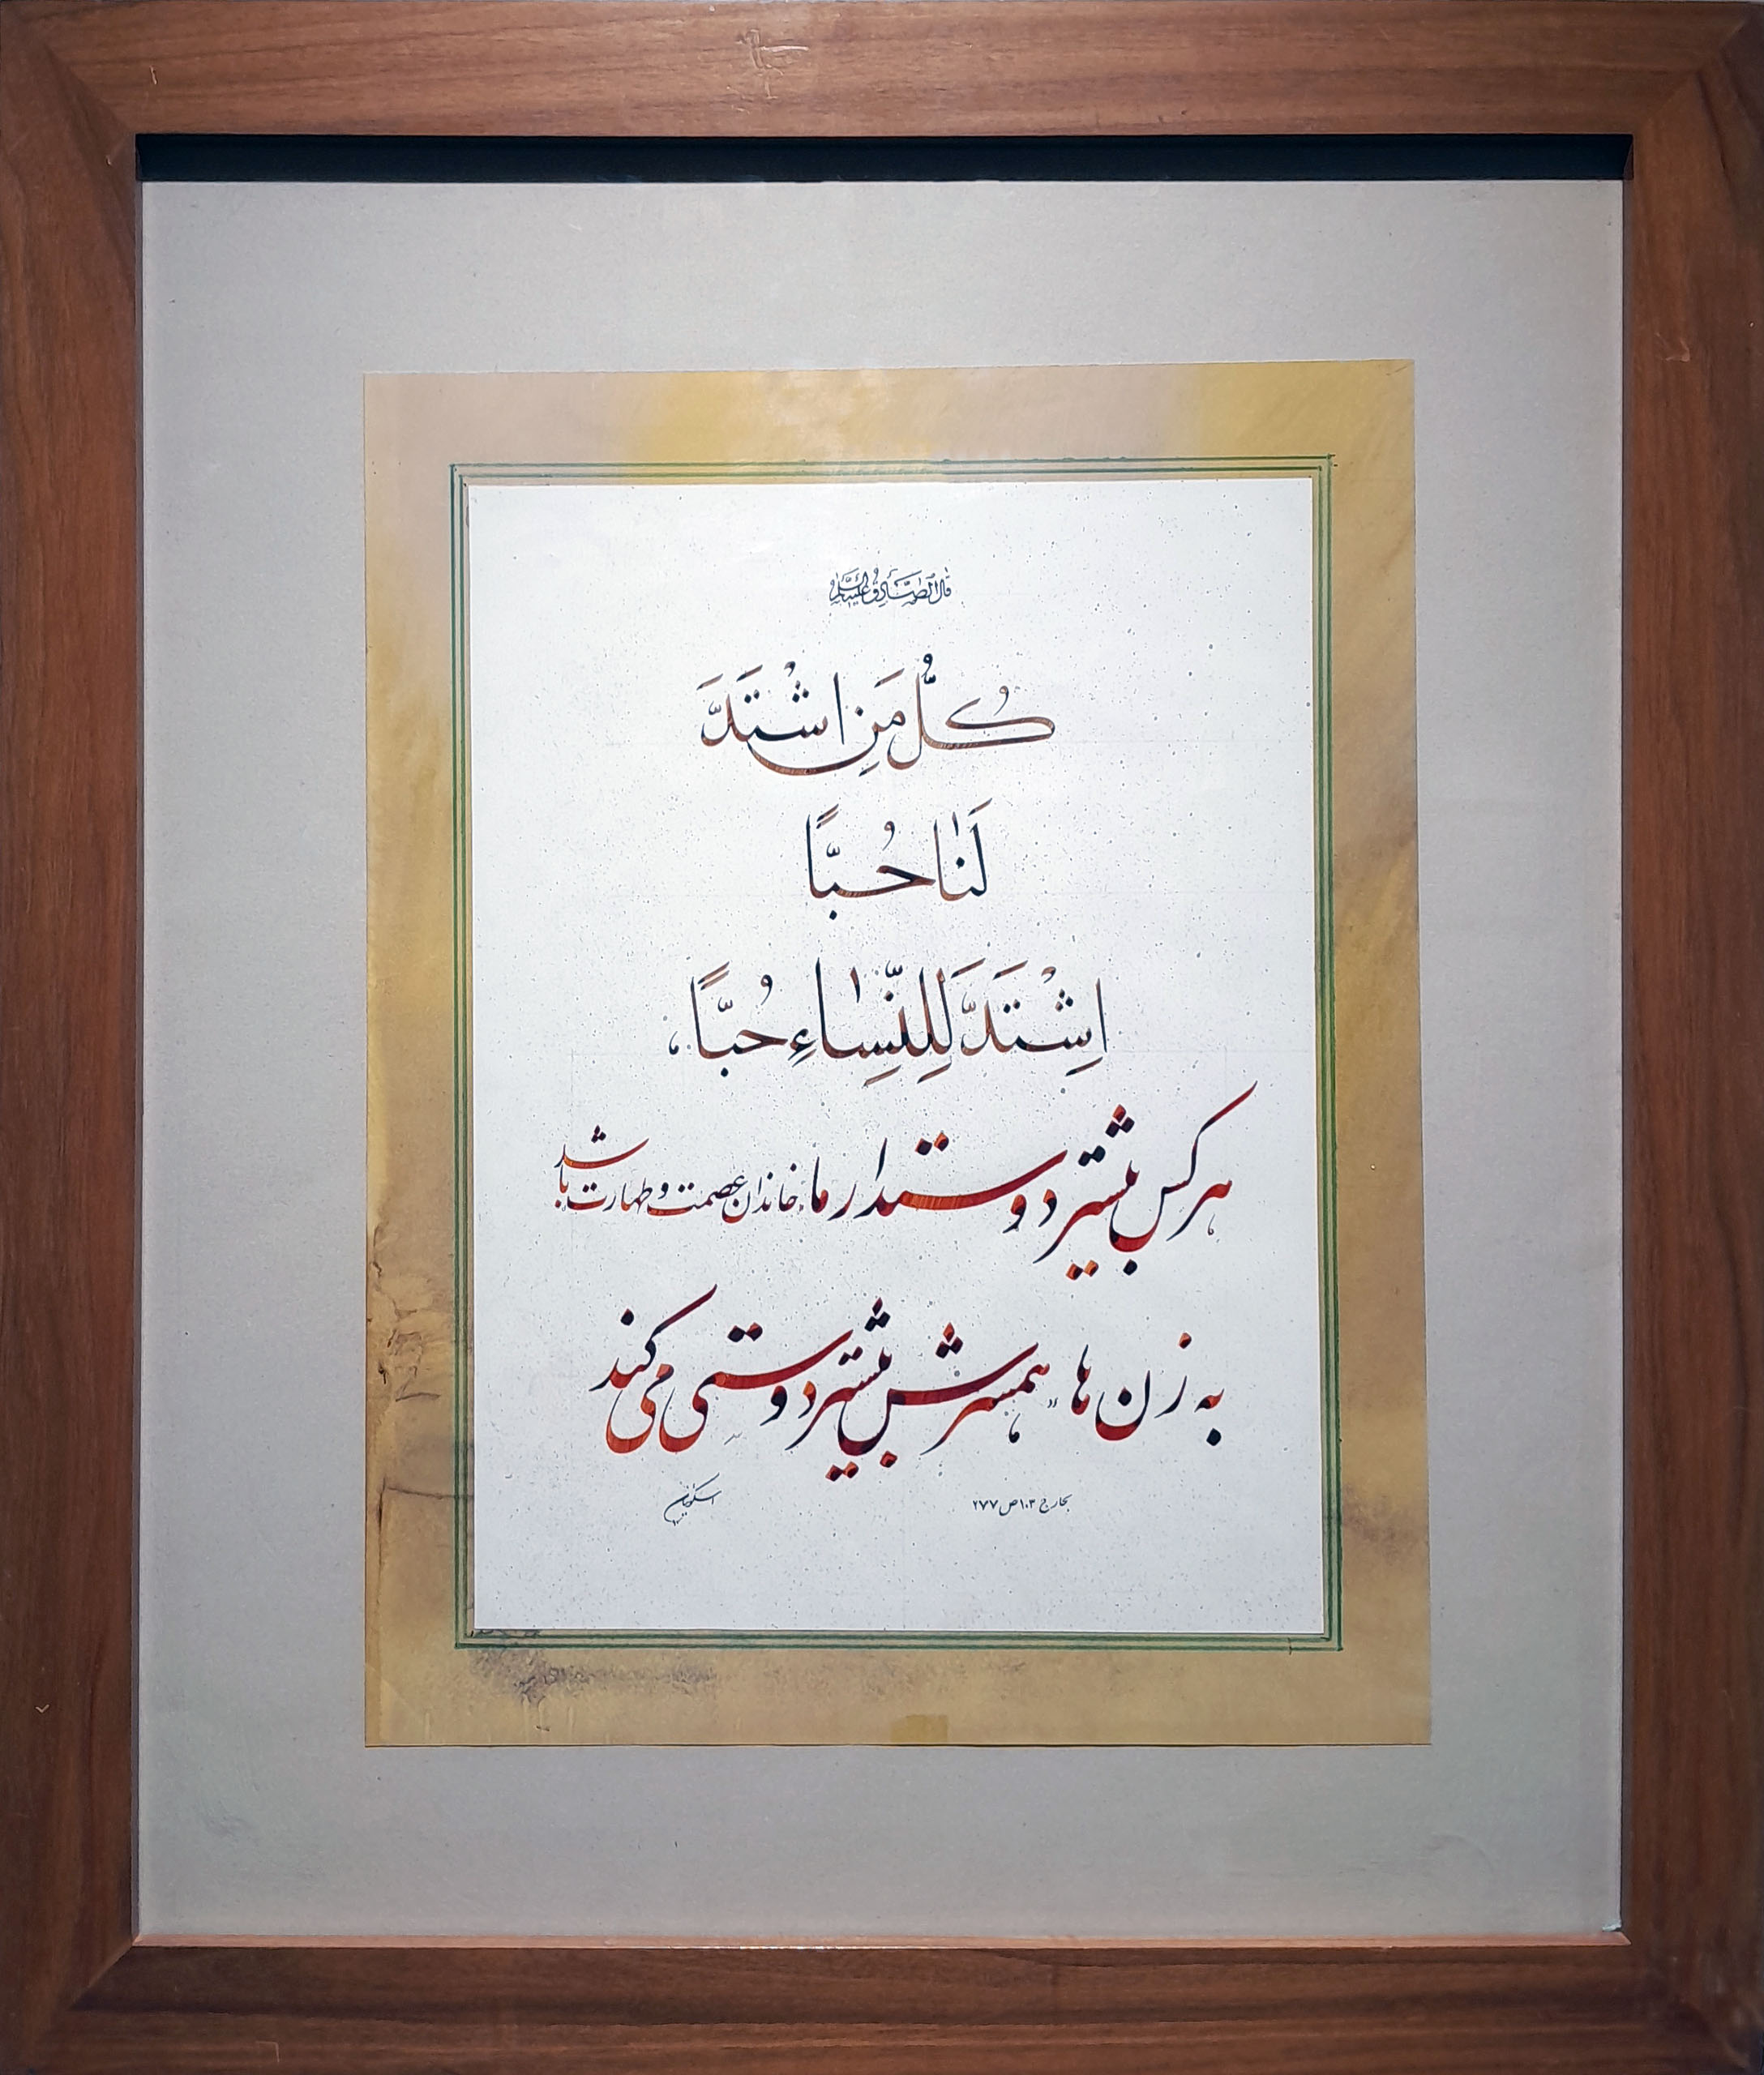 قال الصّادق علیه السلام
كُلُّ مَنِ اشْتَدَّ
لَنا حُبًّا
اِشْتَدَّ لِلنِّساءِ حُبًّا
هر کس بیشتر دوستدار ما «خاندان عصمت و طهارت» باشد
به زن ها «همسرش» بیشتر دوستی می کند
بحار ج ۱۰۳ ص ۲۷۷